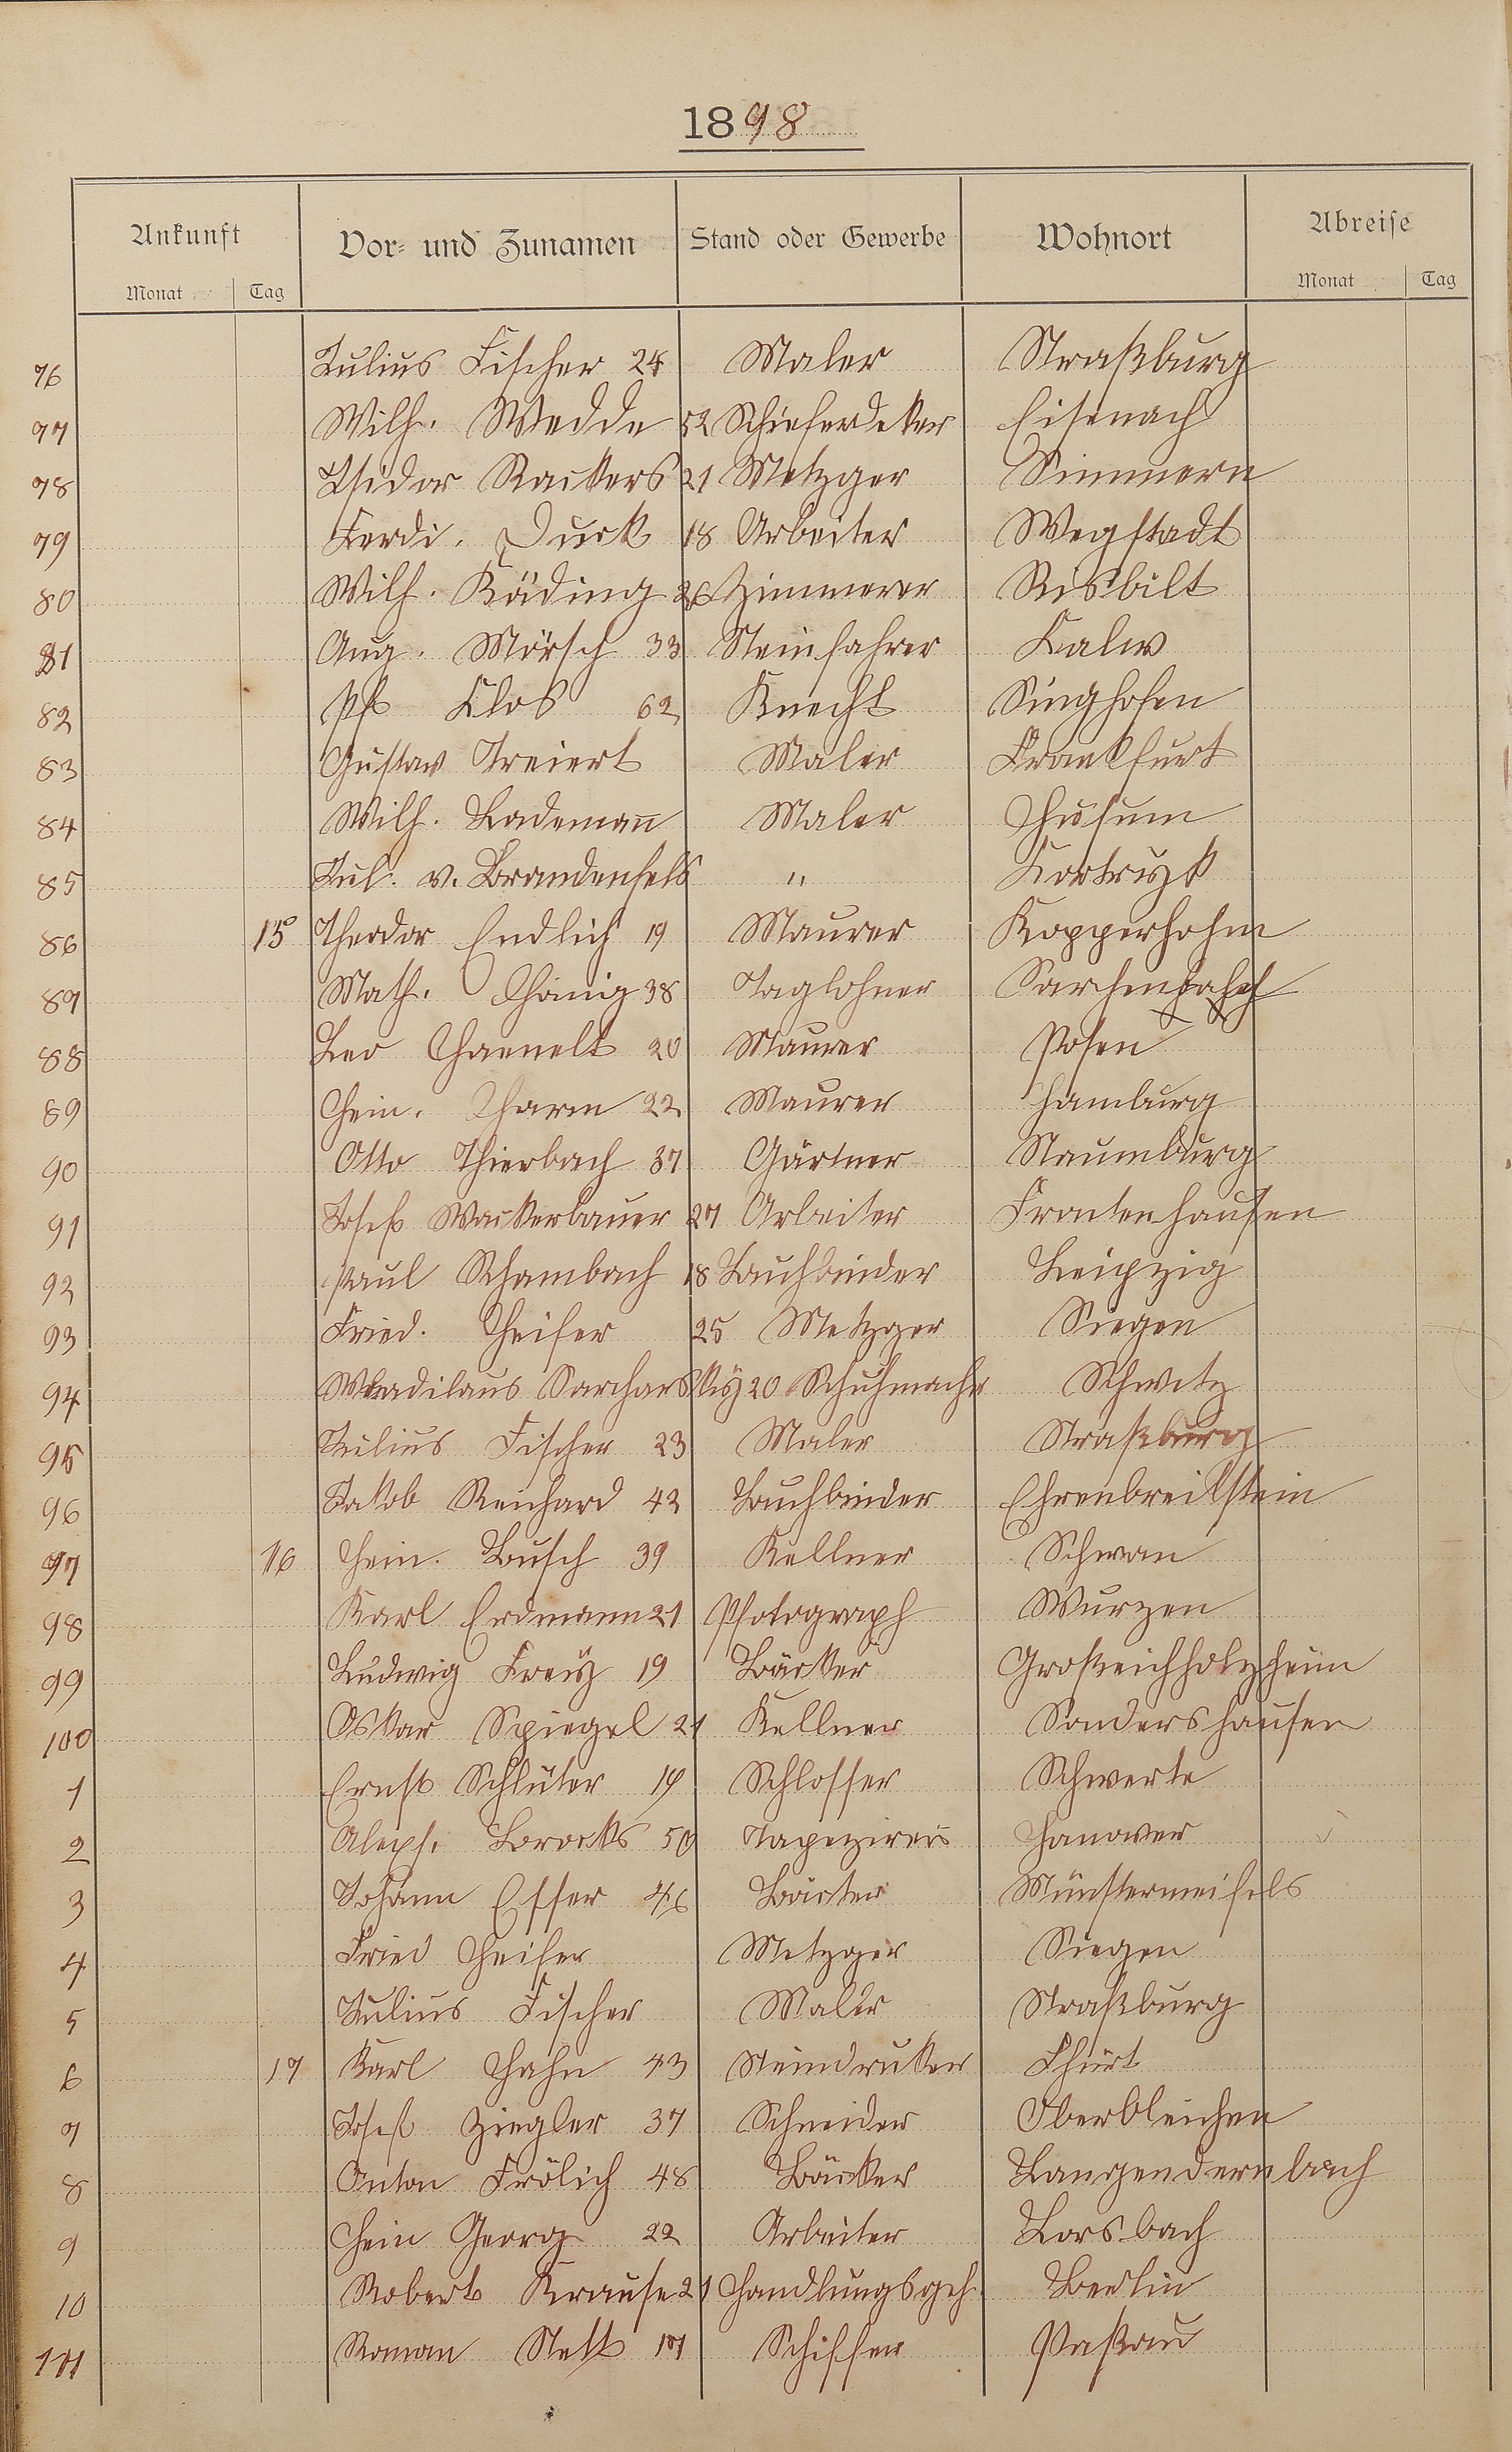 1898
Ankunft Vor- und Zunamen Stand oder Gewerbe Wohnort Abreise
Monat Tag Monat Tag
76 Julius Fischer 24 Maler Straßburg
77 Wilh. Wedde 52 Schieferdeker Eisenach
78 Isidor Rackers 21 Metzger Simmern
79 Ferdi. Durk 18 Arbeiter Wegstadt
80 Wilh. Käding 26 Zimmerer Risbilt
81 Aug. Mörsch 33 Steinfahrer Kalw
82 Ph Klos 62 Knecht Singhofen
83 Gustav Treiert Maler Frankfurt
84 Wilh. Lademan̅ Maler Husum
85 Jul. v. Brandenfels " 
86 15 Theodor Endlich 19 Maurer Kopperhohm
87 Math. Hönig 38 Taglohner
88 Leo Haenelt 20 Maurer Posen
89 Hein. Harm 22 Maurer Hamburg
90 Otto Thierbach 37 Gärtner Naumburg
91 Josef Wackerbauer 27 Arbeiter Frontenhausen
92 Paul Schambach 18 Buchbinder Leipzig
93 Fried. Heiser 25 Metzger Siegen
94 Wladilaus Sarcharskiÿ 20 Schuhmacher Schwetz
95 Julius Fischer 23 Maler Straßburg
96 Jakob Reichard 42 Buchbinder Ehrenbreitstein
97 16 Hein. Busch 39 Kellner Schwan
98 Karl Erdmann 21 Photograph Wurzen
99 Ludwig Freÿ 19 Bäcker Großeichholzheim
100 Oskar Spiegel 21 Kellner Sondershausen
1 Ernst Schlüter 19 Schlosser Schwerte
2 Brocks 50 Tapezirer Hanover
3 Johann Esser 46 Bäcker Münstermeifels
4 Fried Heiser Metzger Siegen
5 Julius Fischer Maler Straßburg
6 17 Karl Hahn 43 Steindruker Fhürt
7 Josef Ziegler 37 Schneider Oberbleichen
8 Anton Frölich 48 Bäcker Langendernbach
9 Hein Georg 22 Arbeiter Lorsbach
10 Robert Krause 21 Handlungsgeh. Berlin
111 Roman Stett 17 Schiffer Paßau